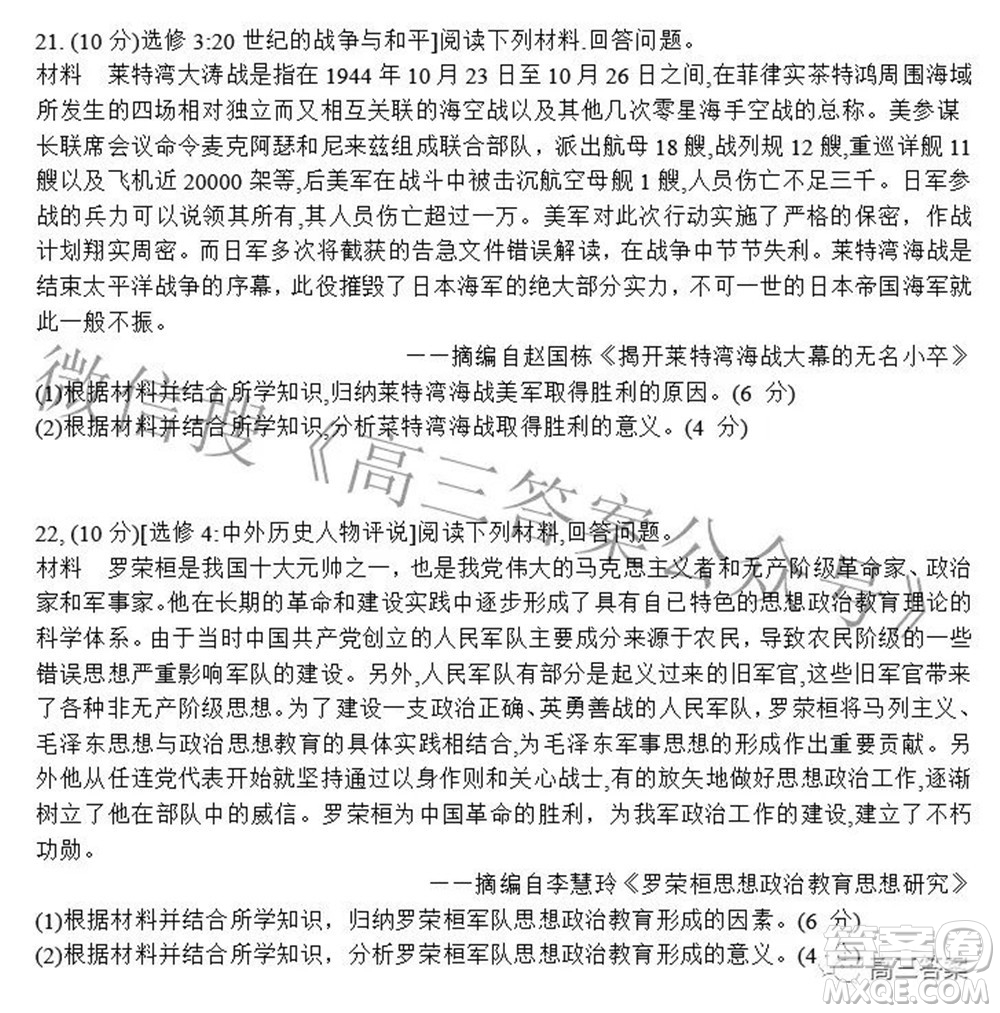 21. (10 分)选修 3:20 世纪的战争与和平]阅读下列材料.回答问题。
材料 莱特湾大涛战是指在 1944 年 10 月 23 日至 10 月 26 日之间,在菲律实茶特鸿周围海域
所发生的四场相对独立而又相互关联的海空战以及其他几次零星海手空战的总称。美参谋
长联席会议命令麦克阿瑟和尼来兹组成联合部队，派出航母 18 艘,战列规 12 艘,重巡详舰 11
艘以及飞机近 20000 架等,后美军在战斗中被击沉航空母舰 1 艘,人员伤亡不足三千。日军参
战的兵力可以说领其所有,其人员伤亡超过一万。美军对此次行动实施了严格的保密，作战
计划翔实周密。而日军多次将截获的告急文件错误解读，在战争中节节失利。莱特湾海战是
结束太平洋战争的序幕，此役摧毁了日本海军的绝大部分实力，不可一世的日本帝国海军就
此一般不振。
——摘编自赵国栋《揭开莱特湾海战大幕的无名小卒》
(1)根据材料并结合所学知识,归纳莱特湾海战美军取得胜利的原因。(6 分)
(2)根据材料并结合所学知识,分析菜特湾海战取得胜利的意义。(4 分)
22, (10 分)[选修 4:中外历史人物评说]阅读下列材料,回答问题。
材料 罗荣桓是我国十大元帅之一，也是我党伟大的马克思主义者和无产阶级革命家、政治
家和军事家。他在长期的革命和建设实践中逐步形成了具有自己特色的思想政治教育理论的
科学体系。由于当时中国共产党创立的人民军队主要成分来源于农民，导致农民阶级的一些
错误思想严重影响军队的建设。另外,人民军队有部分是起义过来的旧军官,这些旧军官带来
了各种非无产阶级思想。为了建设一支政治正确、英勇善战的人民军队，罗荣桓将马列主义、
毛泽东思想与政治思想教育的具体实践相结合,为毛泽东军事思想的形成作出重要贡献。另
外他从任连党代表开始就坚持通过以身作则和关心战士,有的放矢地做好思想政治工作,逐渐
树立了他在部队中的威信。罗荣桓为中国革命的胜利，为我军政治工作的建设,建立了不朽
功勋。
——摘编自李慧玲《罗荣桓思想政治教育思想研究》
(1)根据材料并结合所学知识，归纳罗荣桓军队思想政治教育形成的因素。(6 分)
(2)根据材料并结合所学知识，分析罗荣桓军队思想政治教育形成的意义。(4
微信搜《高三答案公众号》
答案卷
高三答案
MXQE.COM